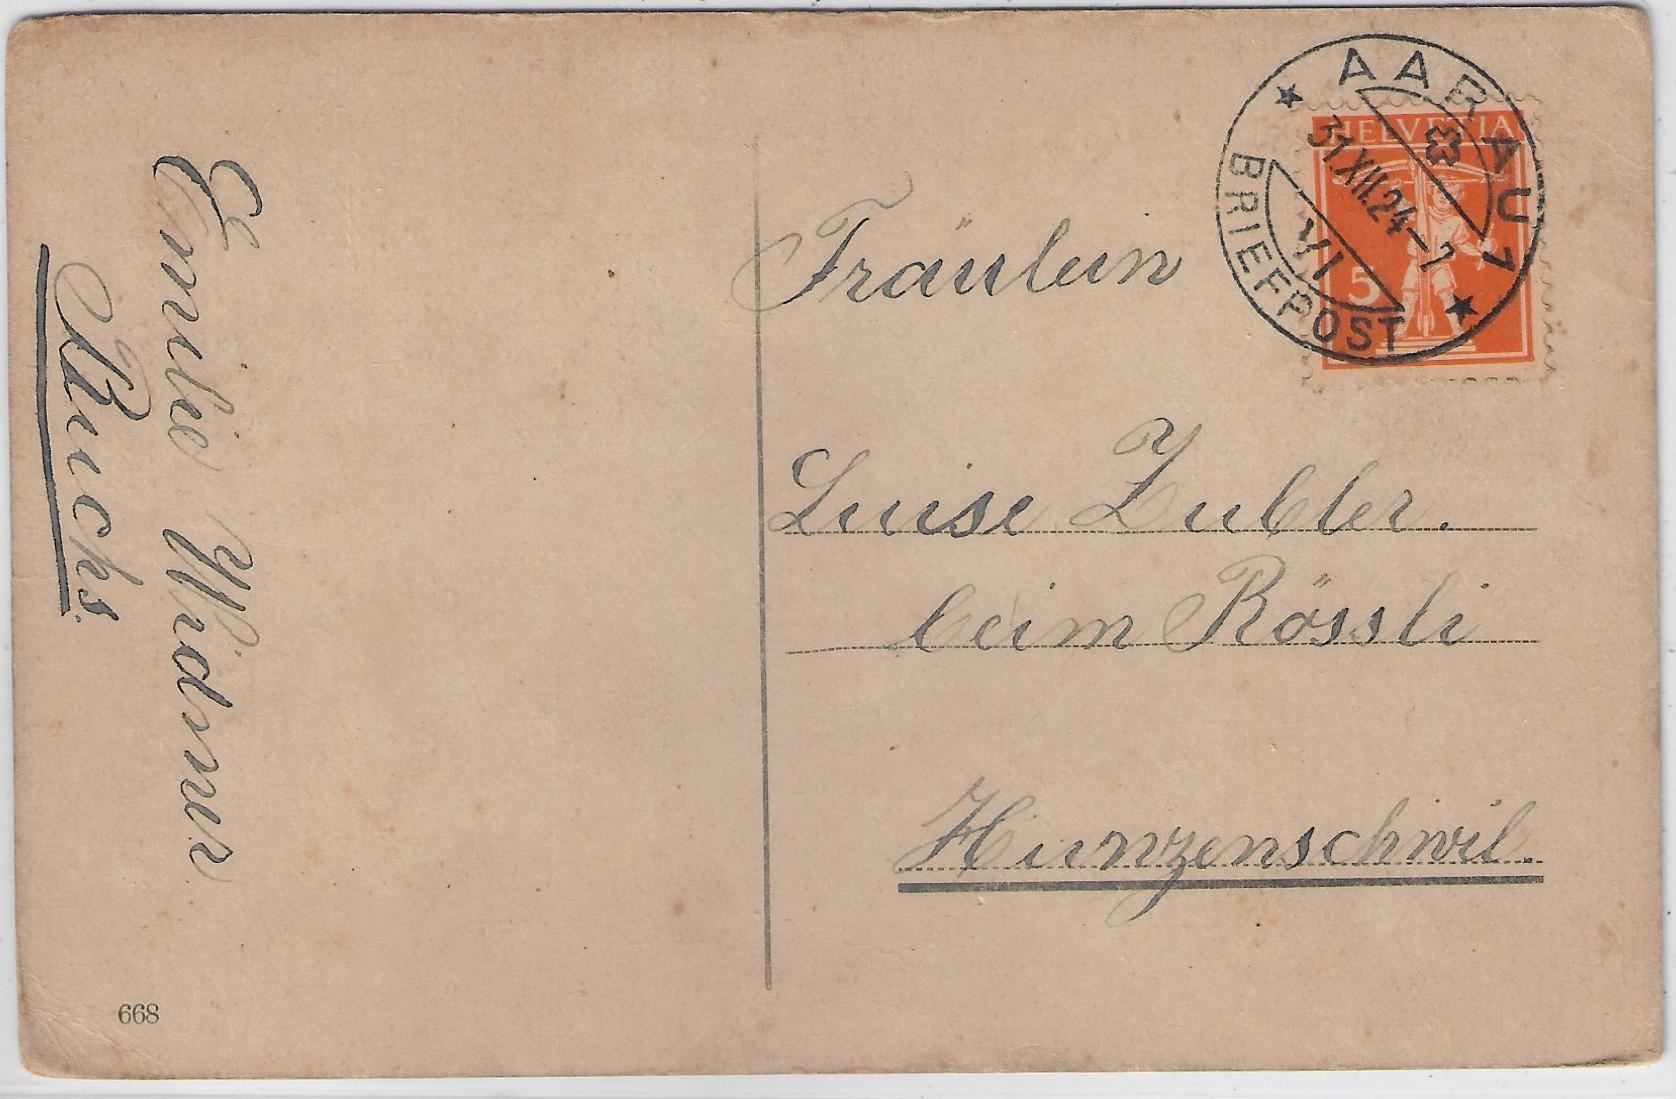 Emilie Widmer
Buchs.
Fräulein
Luise Zubler.
beim Rössli
Hunzenschwil.
AARAU 1
BRIEFPOST
31.XII.24-7
VI
HELVETIA
5
668